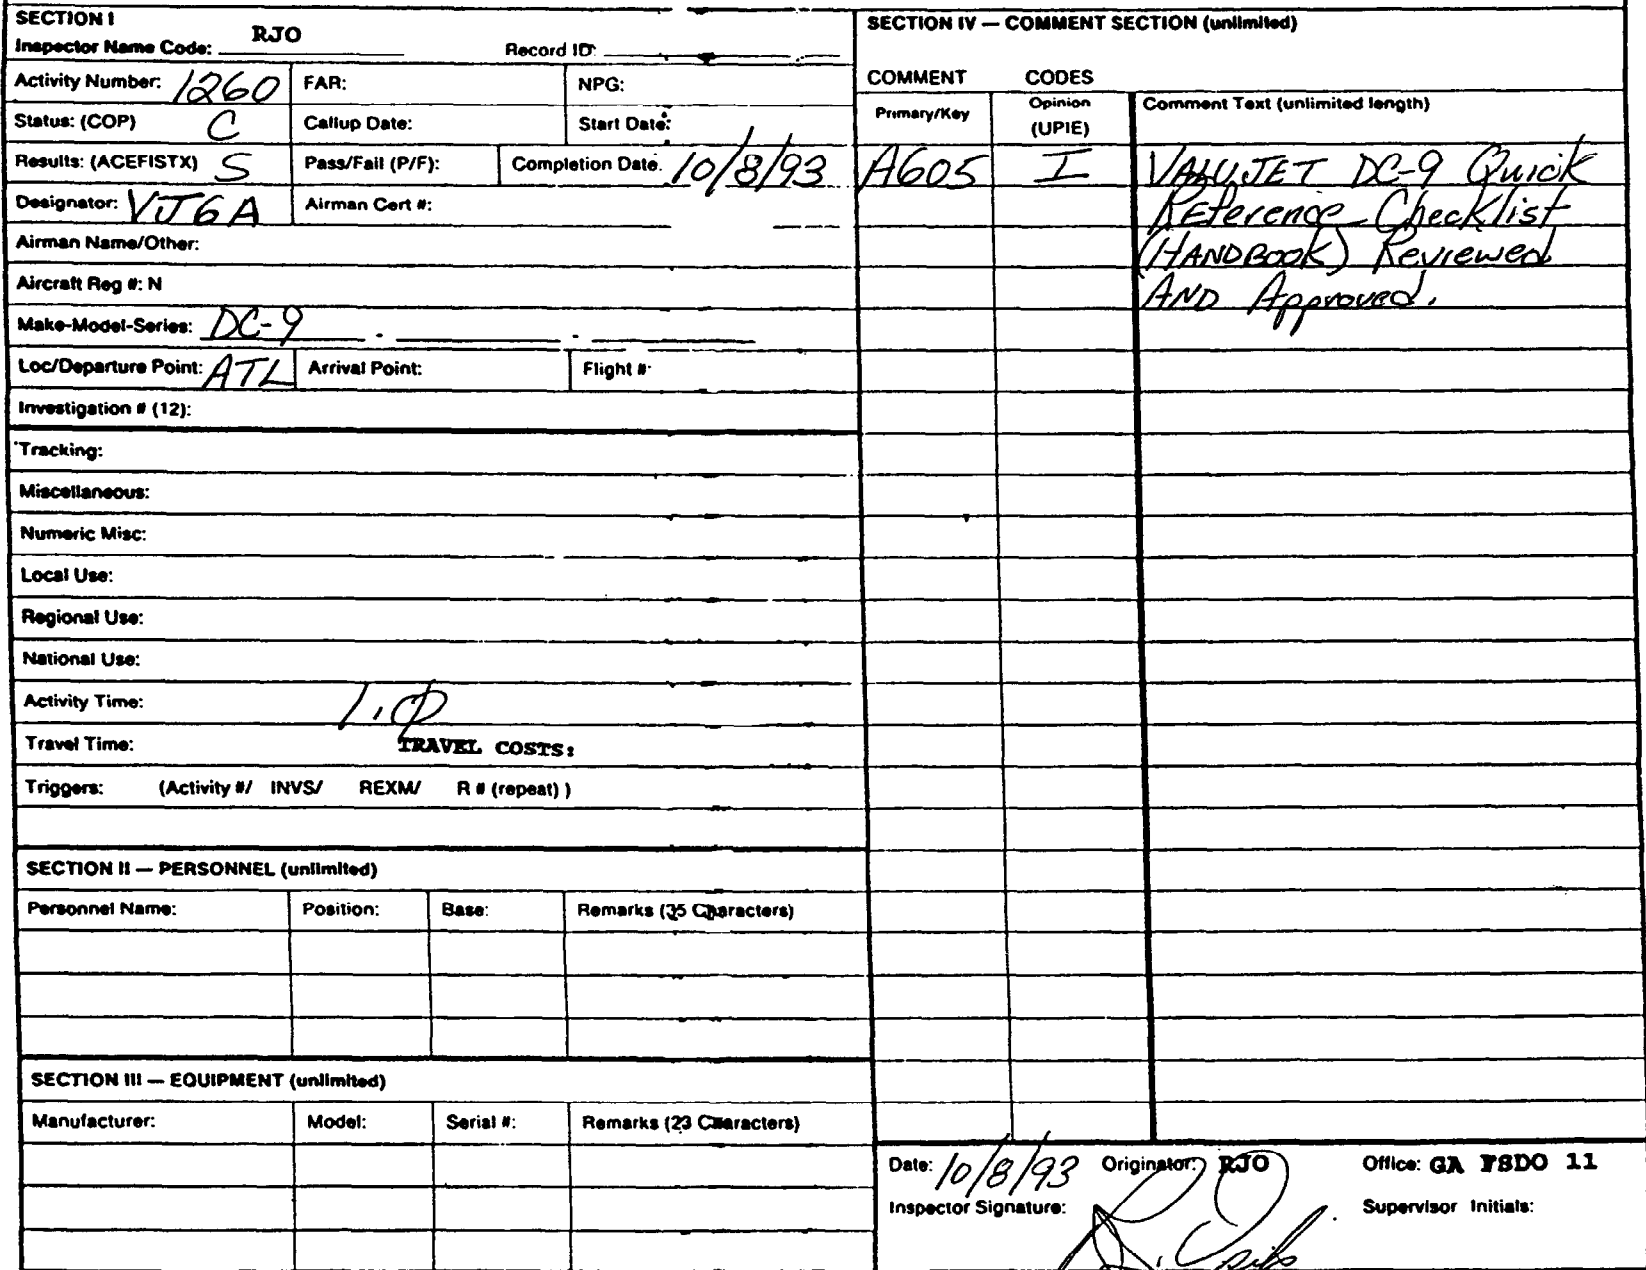 SECTION I
Inspector Name Code: RJO Record ID:
Activity Number: 1260 FAR: NPG:
Status: (COP) C Callup Date: Start Date:
Results: (ACEFISTX) S Pass/Fail (P/F): Completion Date. 10/8/93
Designator: VJ6A Airman Cert #:
Airman Name/Other:
Aircraft Reg #: N
Make-Model-Series: DC-9 - -
Loc/Departure Point: ATL Arrival Point: Flight #:
Investigation # (12):
Tracking:
Miscellaneous:
Numeric Misc:
Local Use:
Regional Use:
National Use:
Activity Time: 1.0
Travel Time: TRAVEL COSTS:
Triggers: (Activity #/ INVS/ REXM/ R # (repeat) )
SECTION II — PERSONNEL (unlimited)
Personnel Name: Position: Base: Remarks (35 Characters)
SECTION III — EQUIPMENT (unlimited)
Manufacturer: Model: Serial #: Remarks (23 Characters)
SECTION IV — COMMENT SECTION (unlimited)
COMMENT CODES
Primary/Key Opinion (UPIE) Comment Text (unlimited length)
A605 I VALUJET DC-9 Quick
REference Checklist
(HANDBOOK) Reviewed
AND Approved.
Date: 10/8/93 Originator: RJO Office: GA FSDO 11
Inspector Signature: Supervisor Initials: